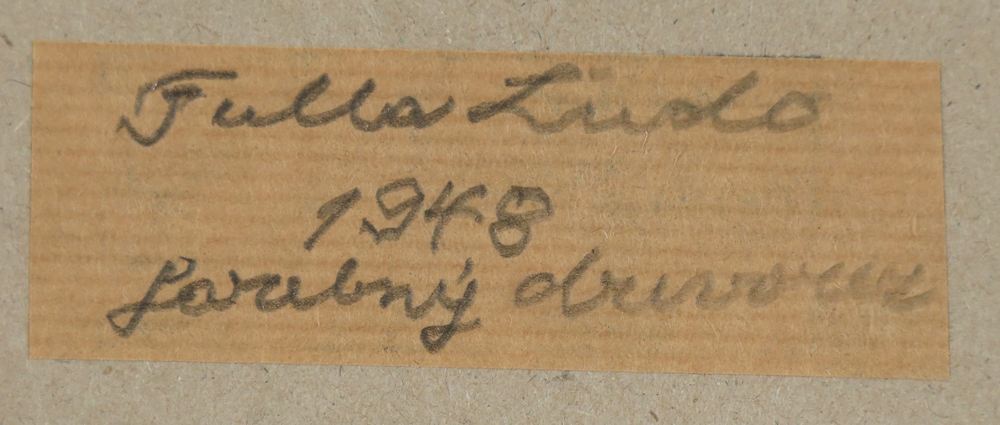 Fulla Ľudo
1948
farebný drevorez